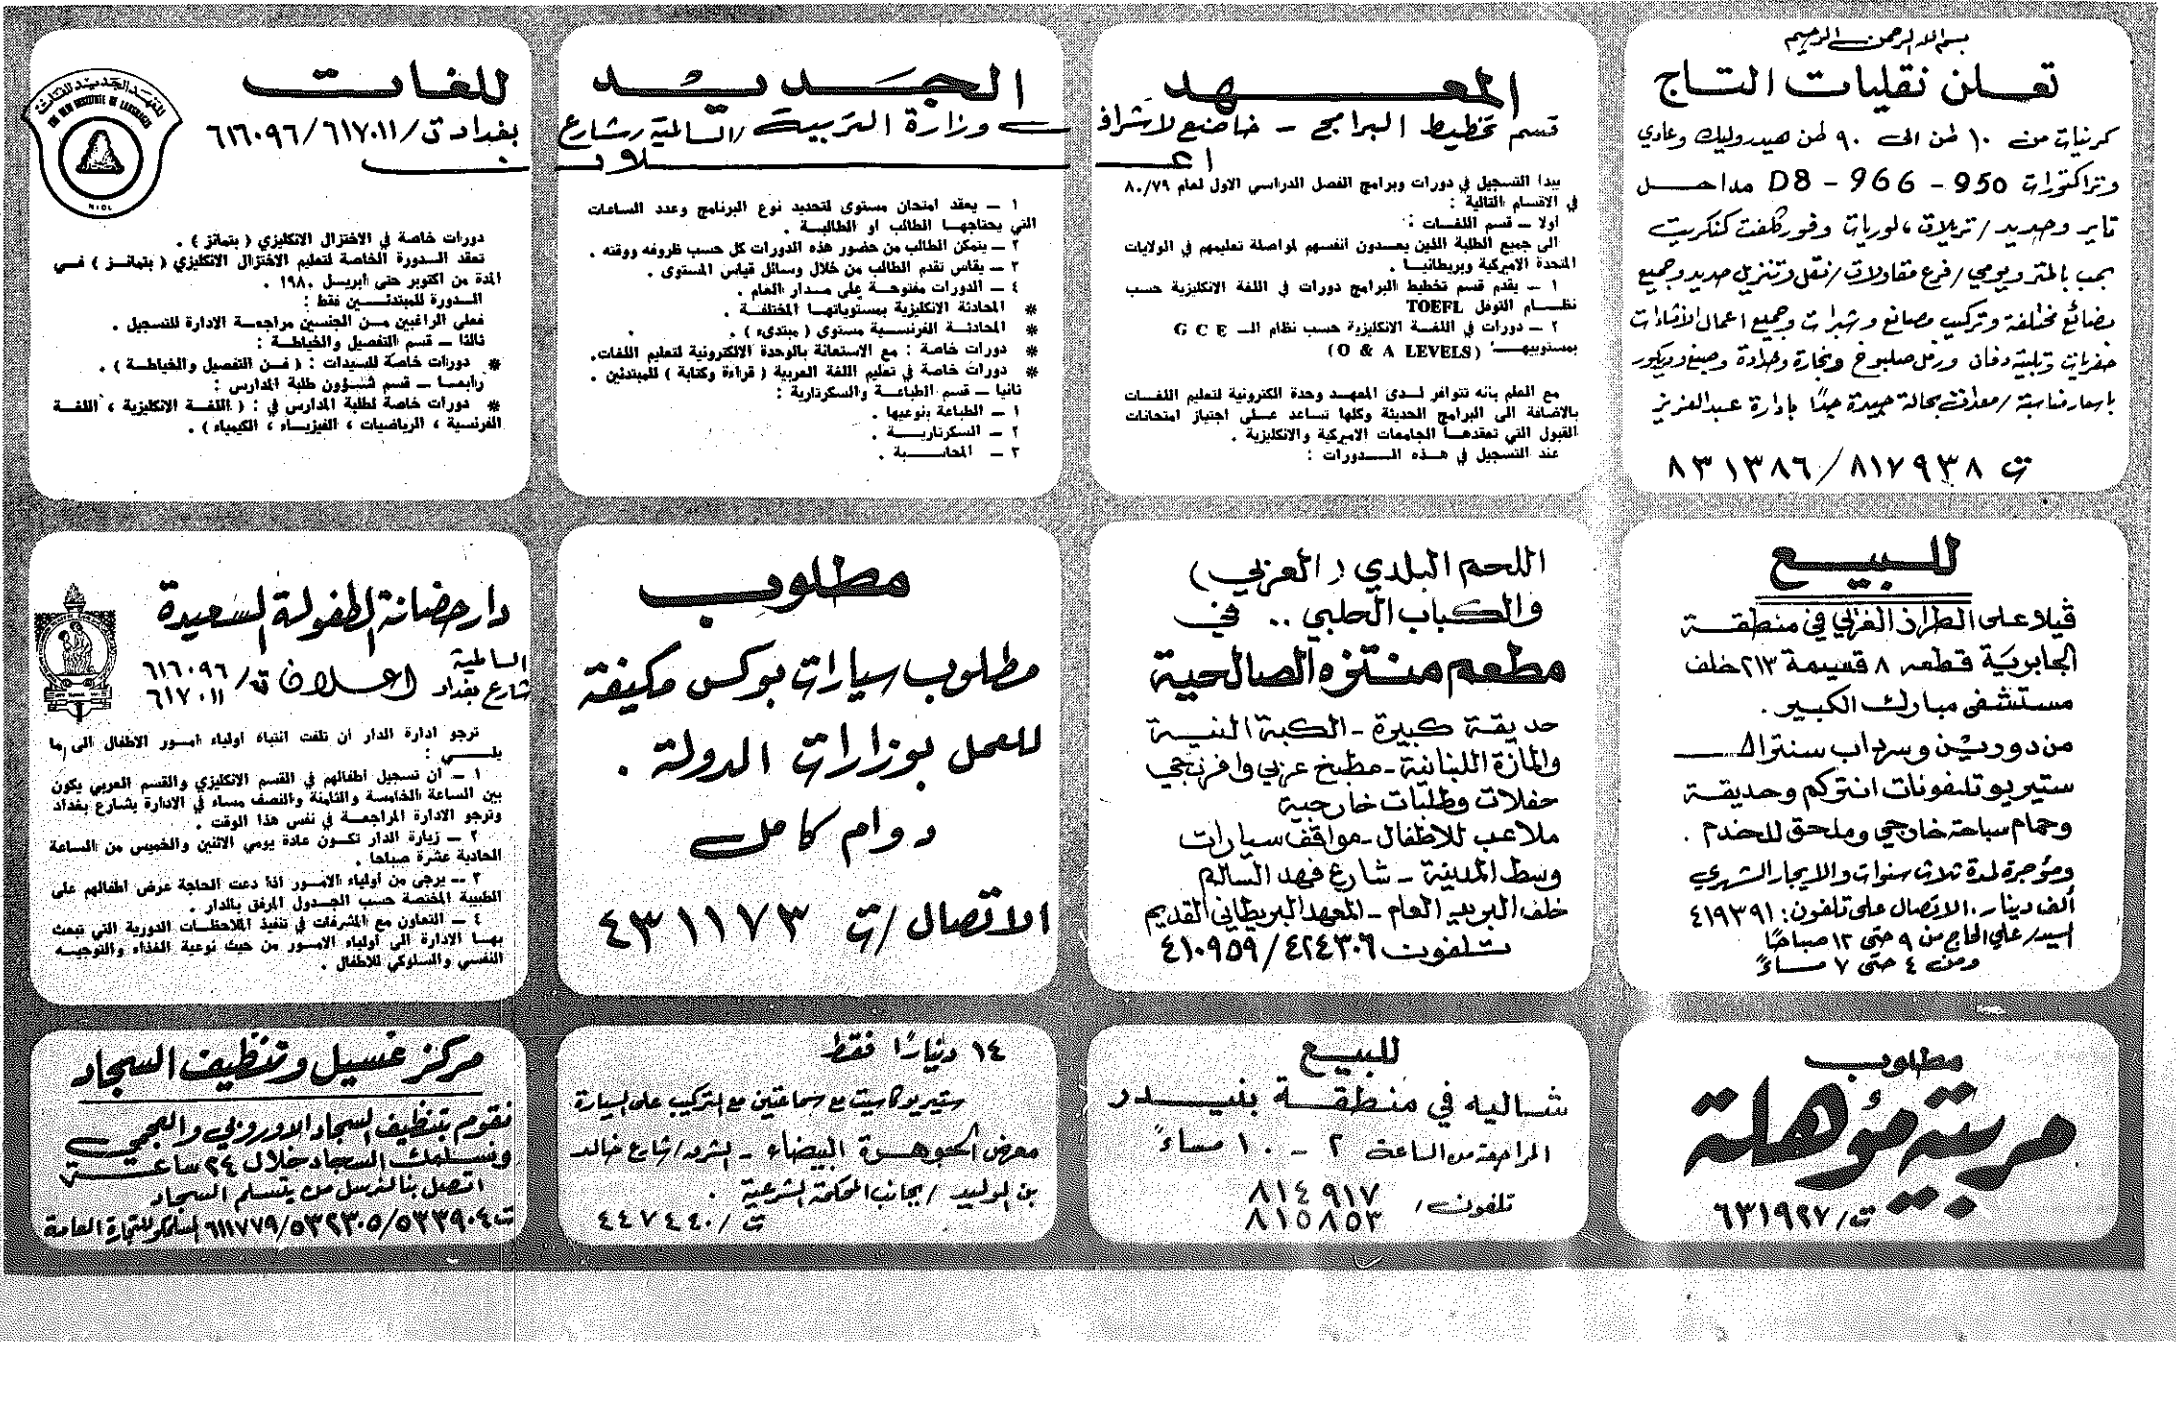 بسم الله الرحمن الرحيم
تعلن نقليات التاج
كرنيات من ١٠ طن الى ٩٠ طن هيدروليك وعادي
وتراكتورات D8 - 966 - 950 مداحل
تاير وحديد / تريلات، لوريات وفوركلفت كنكريت
بمب بالمتر ويومي / فرع مقاولات / نقل وتنزيل حديد وجميع
بضائع مختلفة وتركيب مصانع وشبرات وجميع اعمال الانشاءات
حفريات وتبليه دفان ورمل صلبوخ ونجارة وحدادة وصبغ وديكور
باسعار مناسبة / معدات بحالة جيدة جداً بادارة عبدالعزيز
ت ٨١٧٩٣٨/٨٣١٣٨٦
المعهد الجديد للغات
قسم تخطيط البرامج - خاضع لاشراف وزارة التربية / السالمية / شارع بغداد ت / ٦١٧٠١١/٦١٦٠٩٦
اعلان
يبدا التسجيل في دورات وبرامج الفصل الدراسي الاول لعام ٨٠/٧٩
في الاقسام التالية :
أولا — قسم اللغات :
الى جميع الطلبة الذين يعدون انفسهم لمواصلة تعليمهم في الولايات
المتحدة الاميركية وبريطانيا .
١ — يقدم قسم تخطيط البرامج دورات في اللغة الانكليزية حسب
نظام التوفل TOEFL
٢ — دورات في اللغة الانكليزية حسب نظام الـ G C E
بمستوييها (O & A LEVELS)
مع العلم بانه تتوافر لدى المعهد وحدة الكترونية لتعليم اللغات
بالاضافة الى البرامج الحديثة وكلها تساعد على اجتياز امتحانات
القبول التي تعقدها الجامعات الاميركية والانكليزية .
عند التسجيل في هذه الدورات :
١ — يعقد امتحان مستوى لتحديد نوع البرنامج وعدد الساعات
التي يحتاجها الطالب او الطالبة .
٢ — يتمكن الطالب من حضور هذه الدورات كل حسب ظروفه ووقته .
٣ — يقاس تقدم الطالب من خلال وسائل قياس المستوى .
٤ — الدورات مفتوحة على مدار العام .
* المحادثة الانكليزية بمستوياتها المختلفة .
* المحادثة الفرنسية مستوى ( مبتدىء ) .
* دورات خاصة : مع الاستعانة بالوحدة الالكترونية لتعليم اللغات.
* دورات خاصة في تعليم اللغة العربية ( قراءة وكتابة ) للمبتدئين .
ثانيا — قسم الطباعة والسكرتارية :
١ — الطباعة بنوعيها .
٢ — السكرتارية .
٣ — المحاسبة .
المعهد الجديد للغات
THE NEW INSTITUTE OF LANGUAGES
N.I.O.L
دورات خاصة في الاختزال الانكليزي ( بتمانز ) .
تعقد الدورة الخاصة لتعليم الاختزال الانكليزي ( بتمانز ) في
المدة من اكتوبر حتى ابريسل ١٩٨٠ .
الدورة للمبتدئين فقط :
فعلى الراغبين من الجنسين مراجعة الادارة للتسجيل .
ثالثا — قسم التفصيل والخياطة :
* دورات خاصة للسيدات : ( فن التفصيل والخياطة ) .
رابعا — قسم شؤون طلبة المدارس :
* دورات خاصة لطلبة المدارس في : ( اللغة الانكليزية ، اللغة
الفرنسية ، الرياضيات ، الفيزياء ، الكيمياء ) .
للبيع
ڤيلا على الطراز الغربي في منطقة
الجابرية قطعه ٨ قسيمة ٢١٣ خلف
مستشفى مبارك الكبير .
من دورين وسرداب سنترال
ستيريو تلفونات انتركم وحديقة
وحمام سباحة خارجي وملحق للخدم .
ومؤجرة لمدة ثلاث سنوات والايجار الشهري
ألف دينار . الاتصال على تلفون: ٤١٩٣٩١
السيد/ علي الحاج من ٩ حتى ١٢ صباحاً
ومن ٤ حتى ٧ مساءً
اللحم البلدي (العربي)
والكباب الحلبي .. في
مطعم منتزه الصالحية
حديقة كبيرة - الكبة النية
والمازة اللبنانية - مطبخ عربي وافرنجي
حفلات وطلبات خارجية
ملاعب للاطفال - مواقف سيارات
وسط المدينة - شارع فهد السالم
خلف البريد العام - المعهد البريطاني القديم
تلفون ٤٢٤٣٠٦/٤١٠٩٥٩
مطلوب
مطلوب سيارات بوكس مكيفة
للعمل بوزارات الدولة .
دوام كامل
الاتصال / ت ٤٣١١٧٣
دار حضانة الطفولة السعيدة
السالمية
شارع بغداد
اعلان ت / ٦١٦٠٩٦
٦١٧٠١١
ترجو ادارة الدار أن تلفت انتباه أولياء أمور الاطفال الى ما
يلي :
١ — أن تسجيل أطفالهم في القسم الانكليزي والقسم العربي يكون
بين الساعة الخامسة والثامنة والنصف مساء في الادارة بشارع بغداد
وترجو الادارة المراجعة في نفس هذا الوقت .
٢ — زيارة الدار تكون عادة يومي الاثنين والخميس من الساعة
الحادية عشرة صباحا .
٣ — يرجى من أولياء الامور اذا دعت الحاجة عرض اطفالهم على
الطبيبة المختصة حسب الجدول المرفق بالدار .
٤ — التعاون مع المشرفات في تنفيذ الملاحظات الدورية التي تبعث
بها الادارة الى أولياء الامور من حيث نوعية الغذاء والتوجيه
النفسي والسلوكي للاطفال .
مطلوب
مربية مؤهلة
ت/ ٦٣١٩٢٧
للبيع
شاليه في منطقة بنيدر
المراجعة من الساعة ٢ - ١٠ مساءً
تلفون / ٨١٤٩١٧
٨١٥٨٥٣
١٤ ديناراً فقط
ستيريو كاسيت مع سماعتين مع التركيب على السيارة
معرض الجوهرة البيضاء - الشرق / شارع خالد
بن الوليد / بجانب المحكمة الشرعية .
ت / ٤٤٧٤٤٠
مركز غسيل وتنظيف السجاد
نقوم بتنظيف السجاد الاوروبي والعجمي
ونسلمك السجاد خلال ٢٤ ساعة
اتصل بنا لنرسل من يتسلم السجاد
ت ٥٣٣٩٠٤/٥٣٢٣٠٥/٦١١٧٧٩ للتجارة العامة